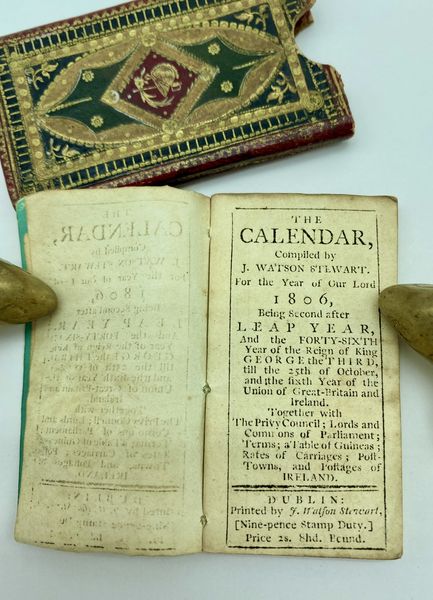 THE
CALENDAR,
Compiled by
J. WATSON STEWART.
For the Year of Our Lord
1806,
Being Second after
LEAP YEAR,
And the FORTY-SIXTH
Year of the Reign of King
GEORGE the THIRD,
till the 25th of October,
and the sixth Year of the
Union of Great-Britain and
Ireland.
Together with
The Privy Council; Lords and
Commons of Parliament;
Terms; a Table of Guineas;
Rates of Carriages; Post-
Towns, and Postages of
IRELAND.
DUBLIN:
Printed by J. Watson Stewart,
[Nine-pence Stamp Duty.]
Price 2s. 8hd. Bound.